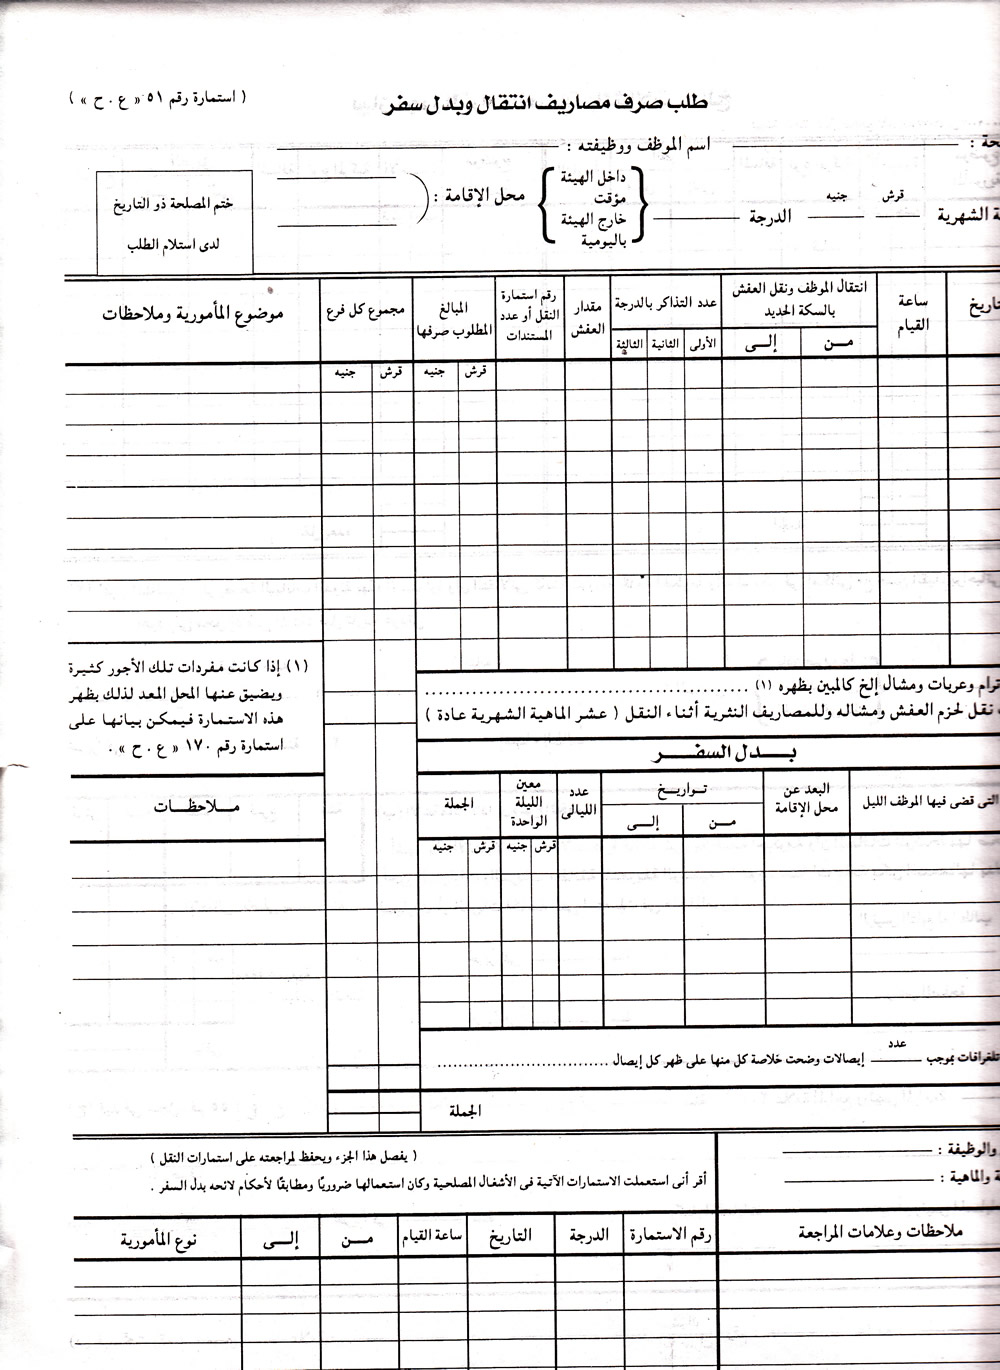 طلب صرف مصاريف انتقال وبدل سفر
( استمارة رقم ٥١ « ع . ح » )
حة :
اسم الموظف ووظيفته :
ة الشهرية
قرش
جنيه
الدرجة
داخل الهيئة
مؤقت
خارج الهيئة
باليومية
محل الإقامة :
ختم المصلحة ذو التاريخ
لدى استلام الطلب
تاريخ
ساعة القيام
انتقال الموظف ونقل العفش بالسكة الحديد
من
إلى
عدد التذاكر بالدرجة
الأولى
الثانية
الثالثة
مقدار العفش
رقم استمارة النقل أو عدد المستندات
المبالغ المطلوب صرفها
مجموع كل فرع
موضوع المأمورية وملاحظات
قرش
جنيه
قرش
جنيه
ترام وعربات ومشال إلخ كالمبين بظهره (١)
نقل لحزم العفش ومشاله وللمصاريف النثرية أثناء النقل ( عشر الماهية الشهرية عادة )
(١) إذا كانت مفردات تلك الأجور كثيرة
ويضيق عنها المحل المعد لذلك بظهر
هذه الاستمارة فيمكن بيانها على
استمارة رقم ١٧٠ « ع . ح » .
بدل السفر
التى قضى فيها الموظف الليل
البعد عن محل الإقامة
تواريخ
من
إلى
عدد الليالى
معين الليلة الواحدة
الجملة
ملاحظات
قرش
جنيه
قرش
جنيه
تلغرافات بموجب
عدد
إيصالات وضحت خلاصة كل منها على ظهر كل إيصال
الجملة
والوظيفة :
ة والماهية :
( يفصل هذا الجزء ويحفظ لمراجعته على استمارات النقل )
أقر أنى استعملت الاستمارات الآتية فى الأشغال المصلحية وكان استعمالها ضروريًا ومطابقًا لأحكام لائحه بدل السفر .
ملاحظات وعلامات المراجعة
رقم الاستمارة
الدرجة
التاريخ
ساعة القيام
من
إلى
نوع المأمورية